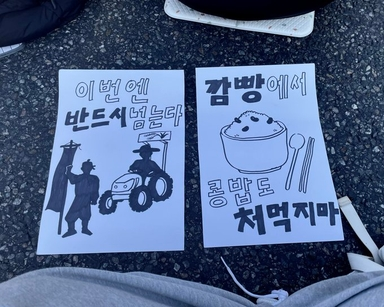 이번엔
반드시 넘는다
깜빵에서
콩밥도
처먹지마